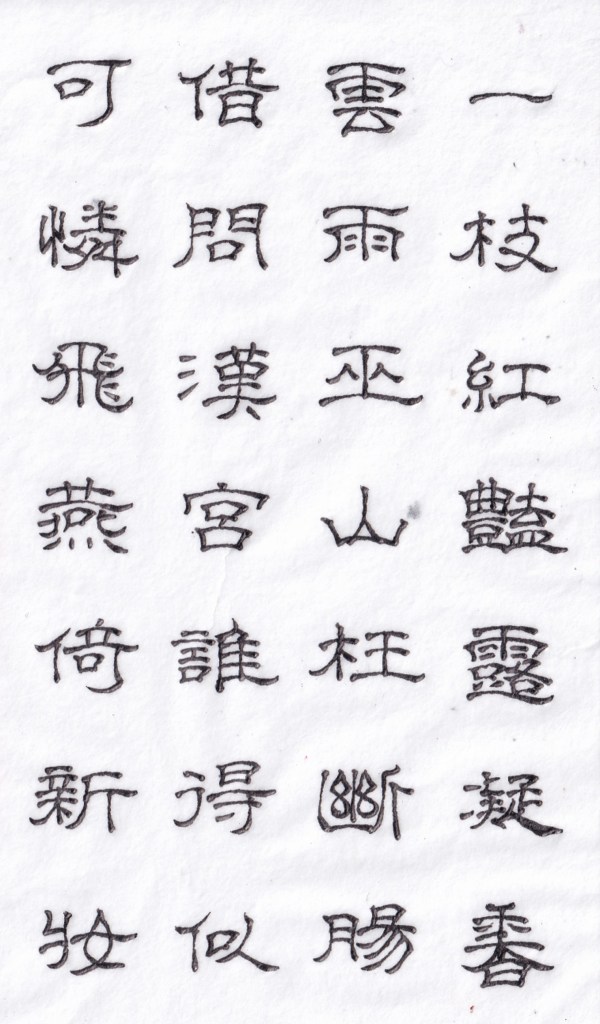 一枝紅豔露凝香
雲雨巫山枉斷腸
借問漢宮誰得似
可憐飛燕倚新妝